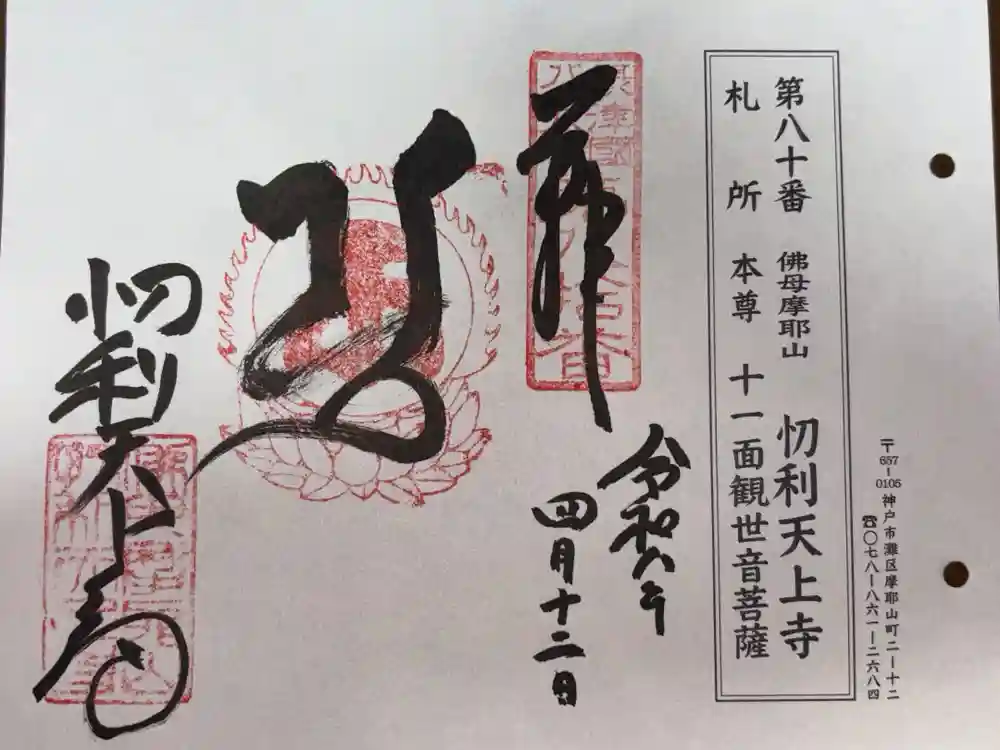 〒657-0105 神戸市灘区摩耶山町二ー十二
☎〇七八ー八六一ー二六八四
第八十番 佛母摩耶山 忉利天上寺
札所 本尊 十一面観世音菩薩
奉拝
令和八年
四月十二日
忉利天上寺